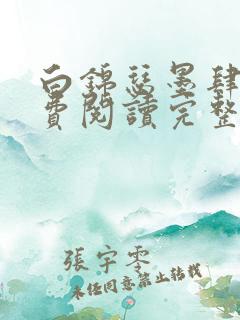 白錦瑟墨肆
費閱讀完整
張宇零
未经同意禁止转载